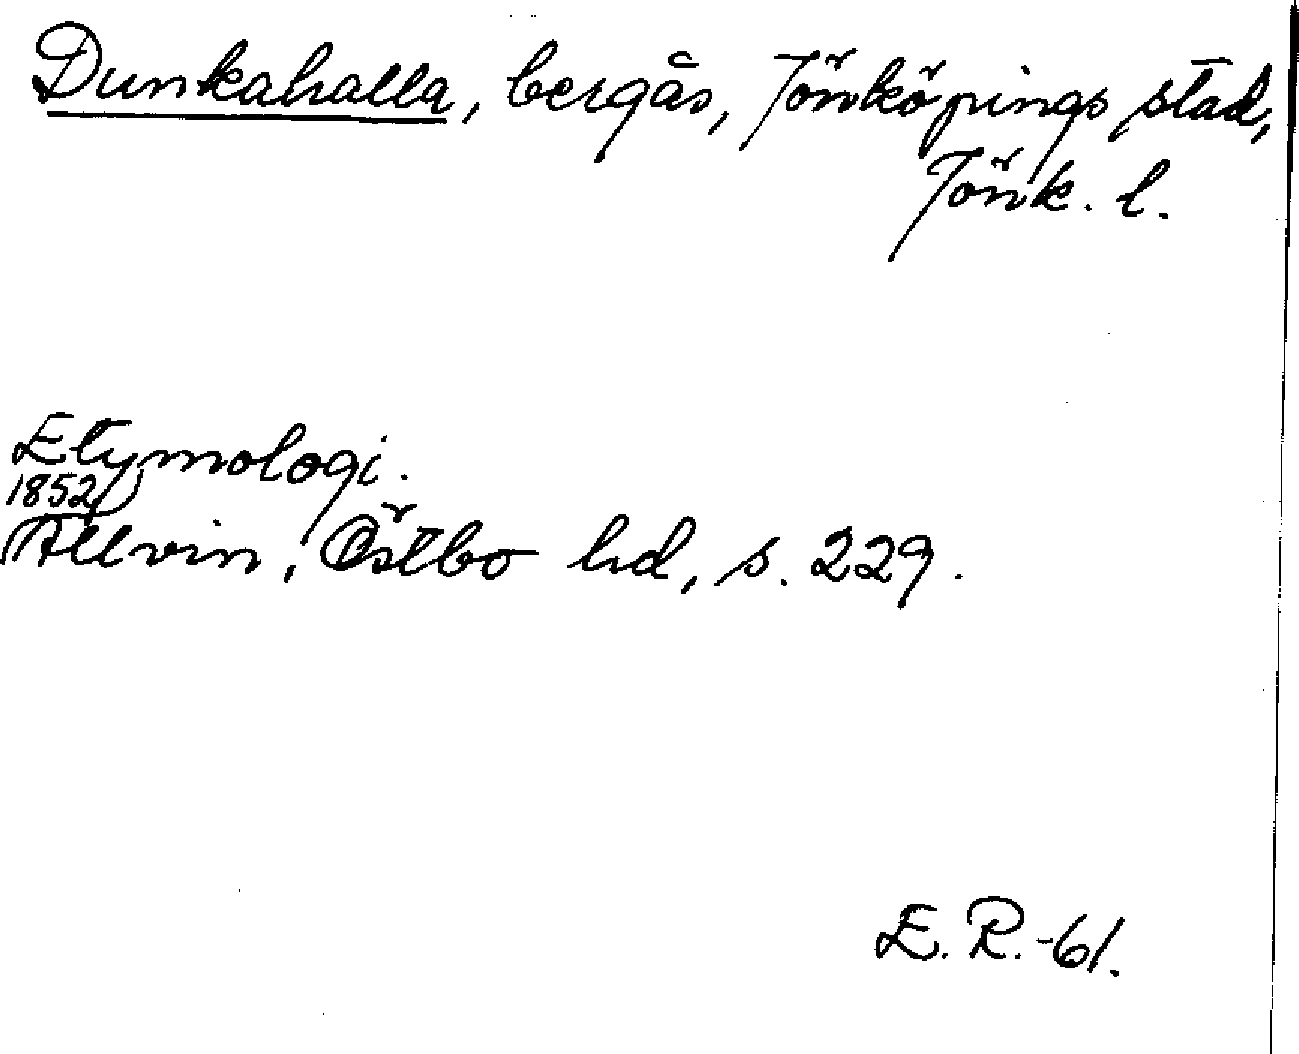 Dunkahalla, bergås, Jönköpings stad,
Jönk. l.
Etymologi.
1852
Allvin, Östbo hd, s. 229.
E. R. -61.